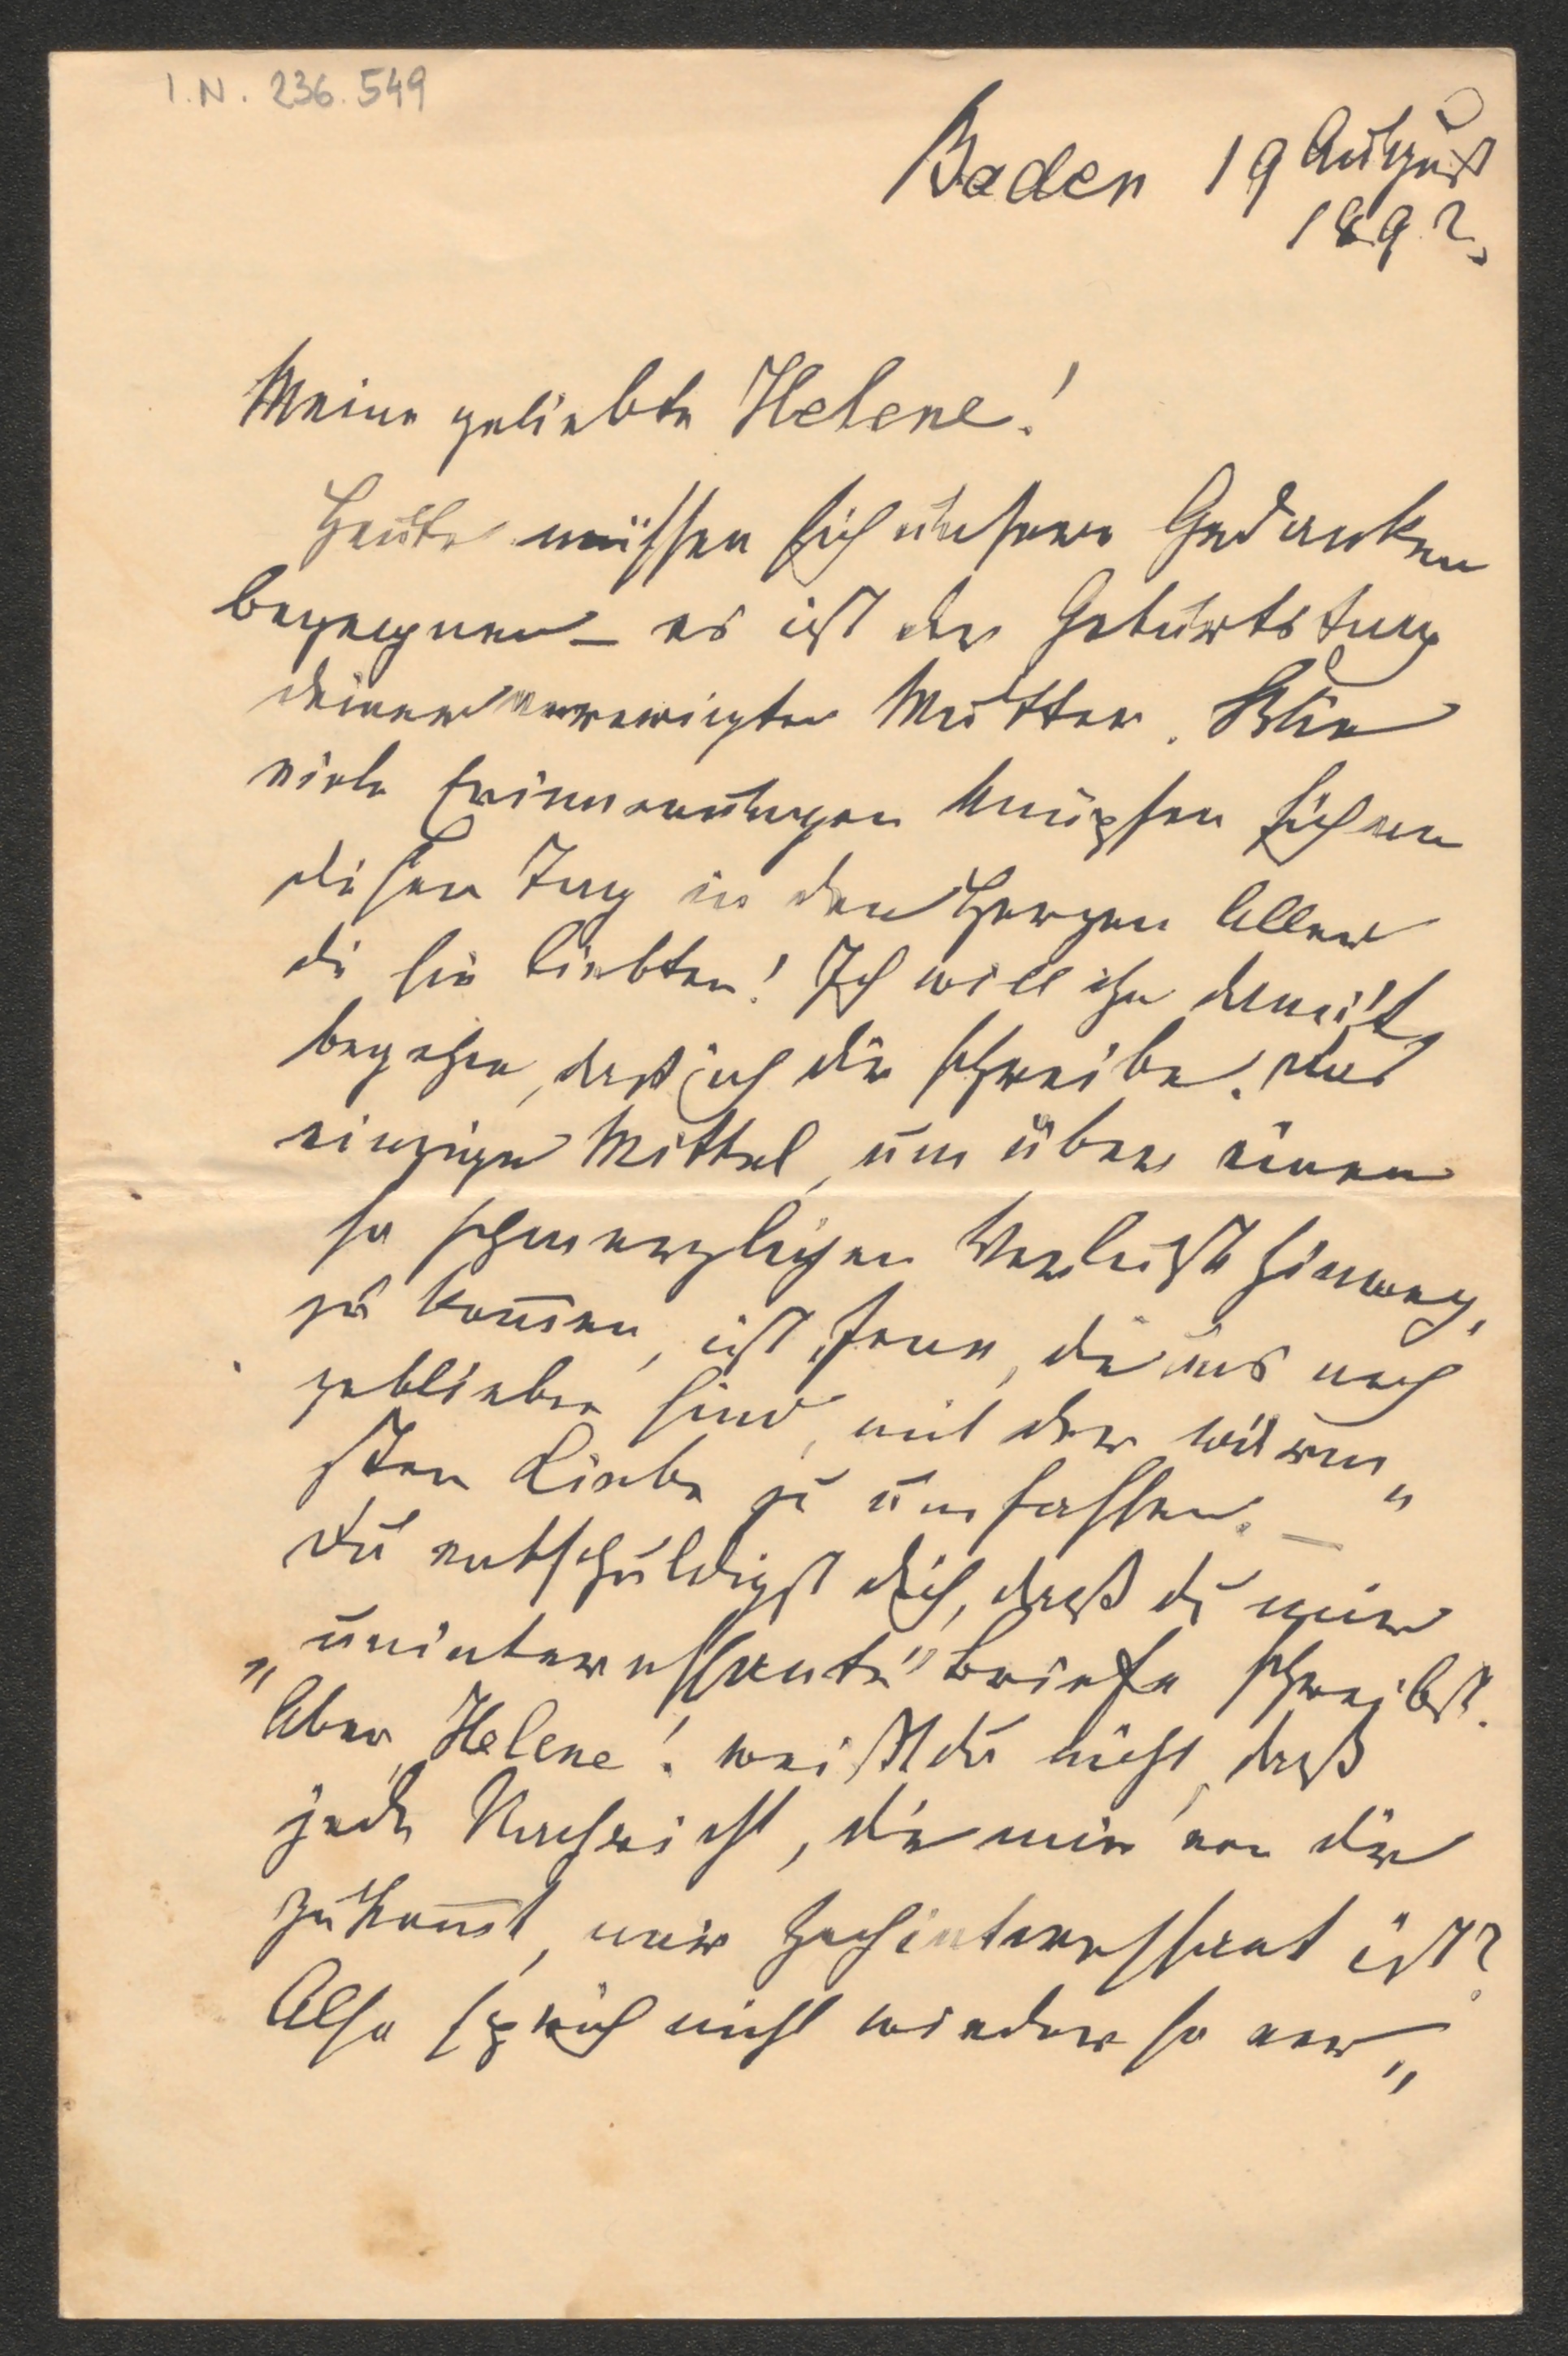 I.N. 236.549
Baden 19 August
1892.
Meine geliebte Helene!
Heute müssen sich unsere Gedanken
begegnen – es ist der Geburtstag
deiner verewigten Mutter. Wie
viele Erinnerungen knüpfen sich an
diesen Tag in den Herzen Aller
die sie liebten! Ich will ihn damit
begehen, daß ich dir schreibe. Das
einzige Mittel, um über einen
so schmerzlichen Verlust hinweg,
zu kom̅en, ist Jene, die uns noch
geblieben sind, mit der wärm„
sten Liebe zu umfassen. –
Du entschuldigst dich, daß du mir
„uninteressante" Briefe schreibst.
Aber, Helene! weißt du nicht, daß
jede Nachricht, die mir von dir
zukom̅t, mir hochinteressant ist?
Also sprich nicht wieder so ver„